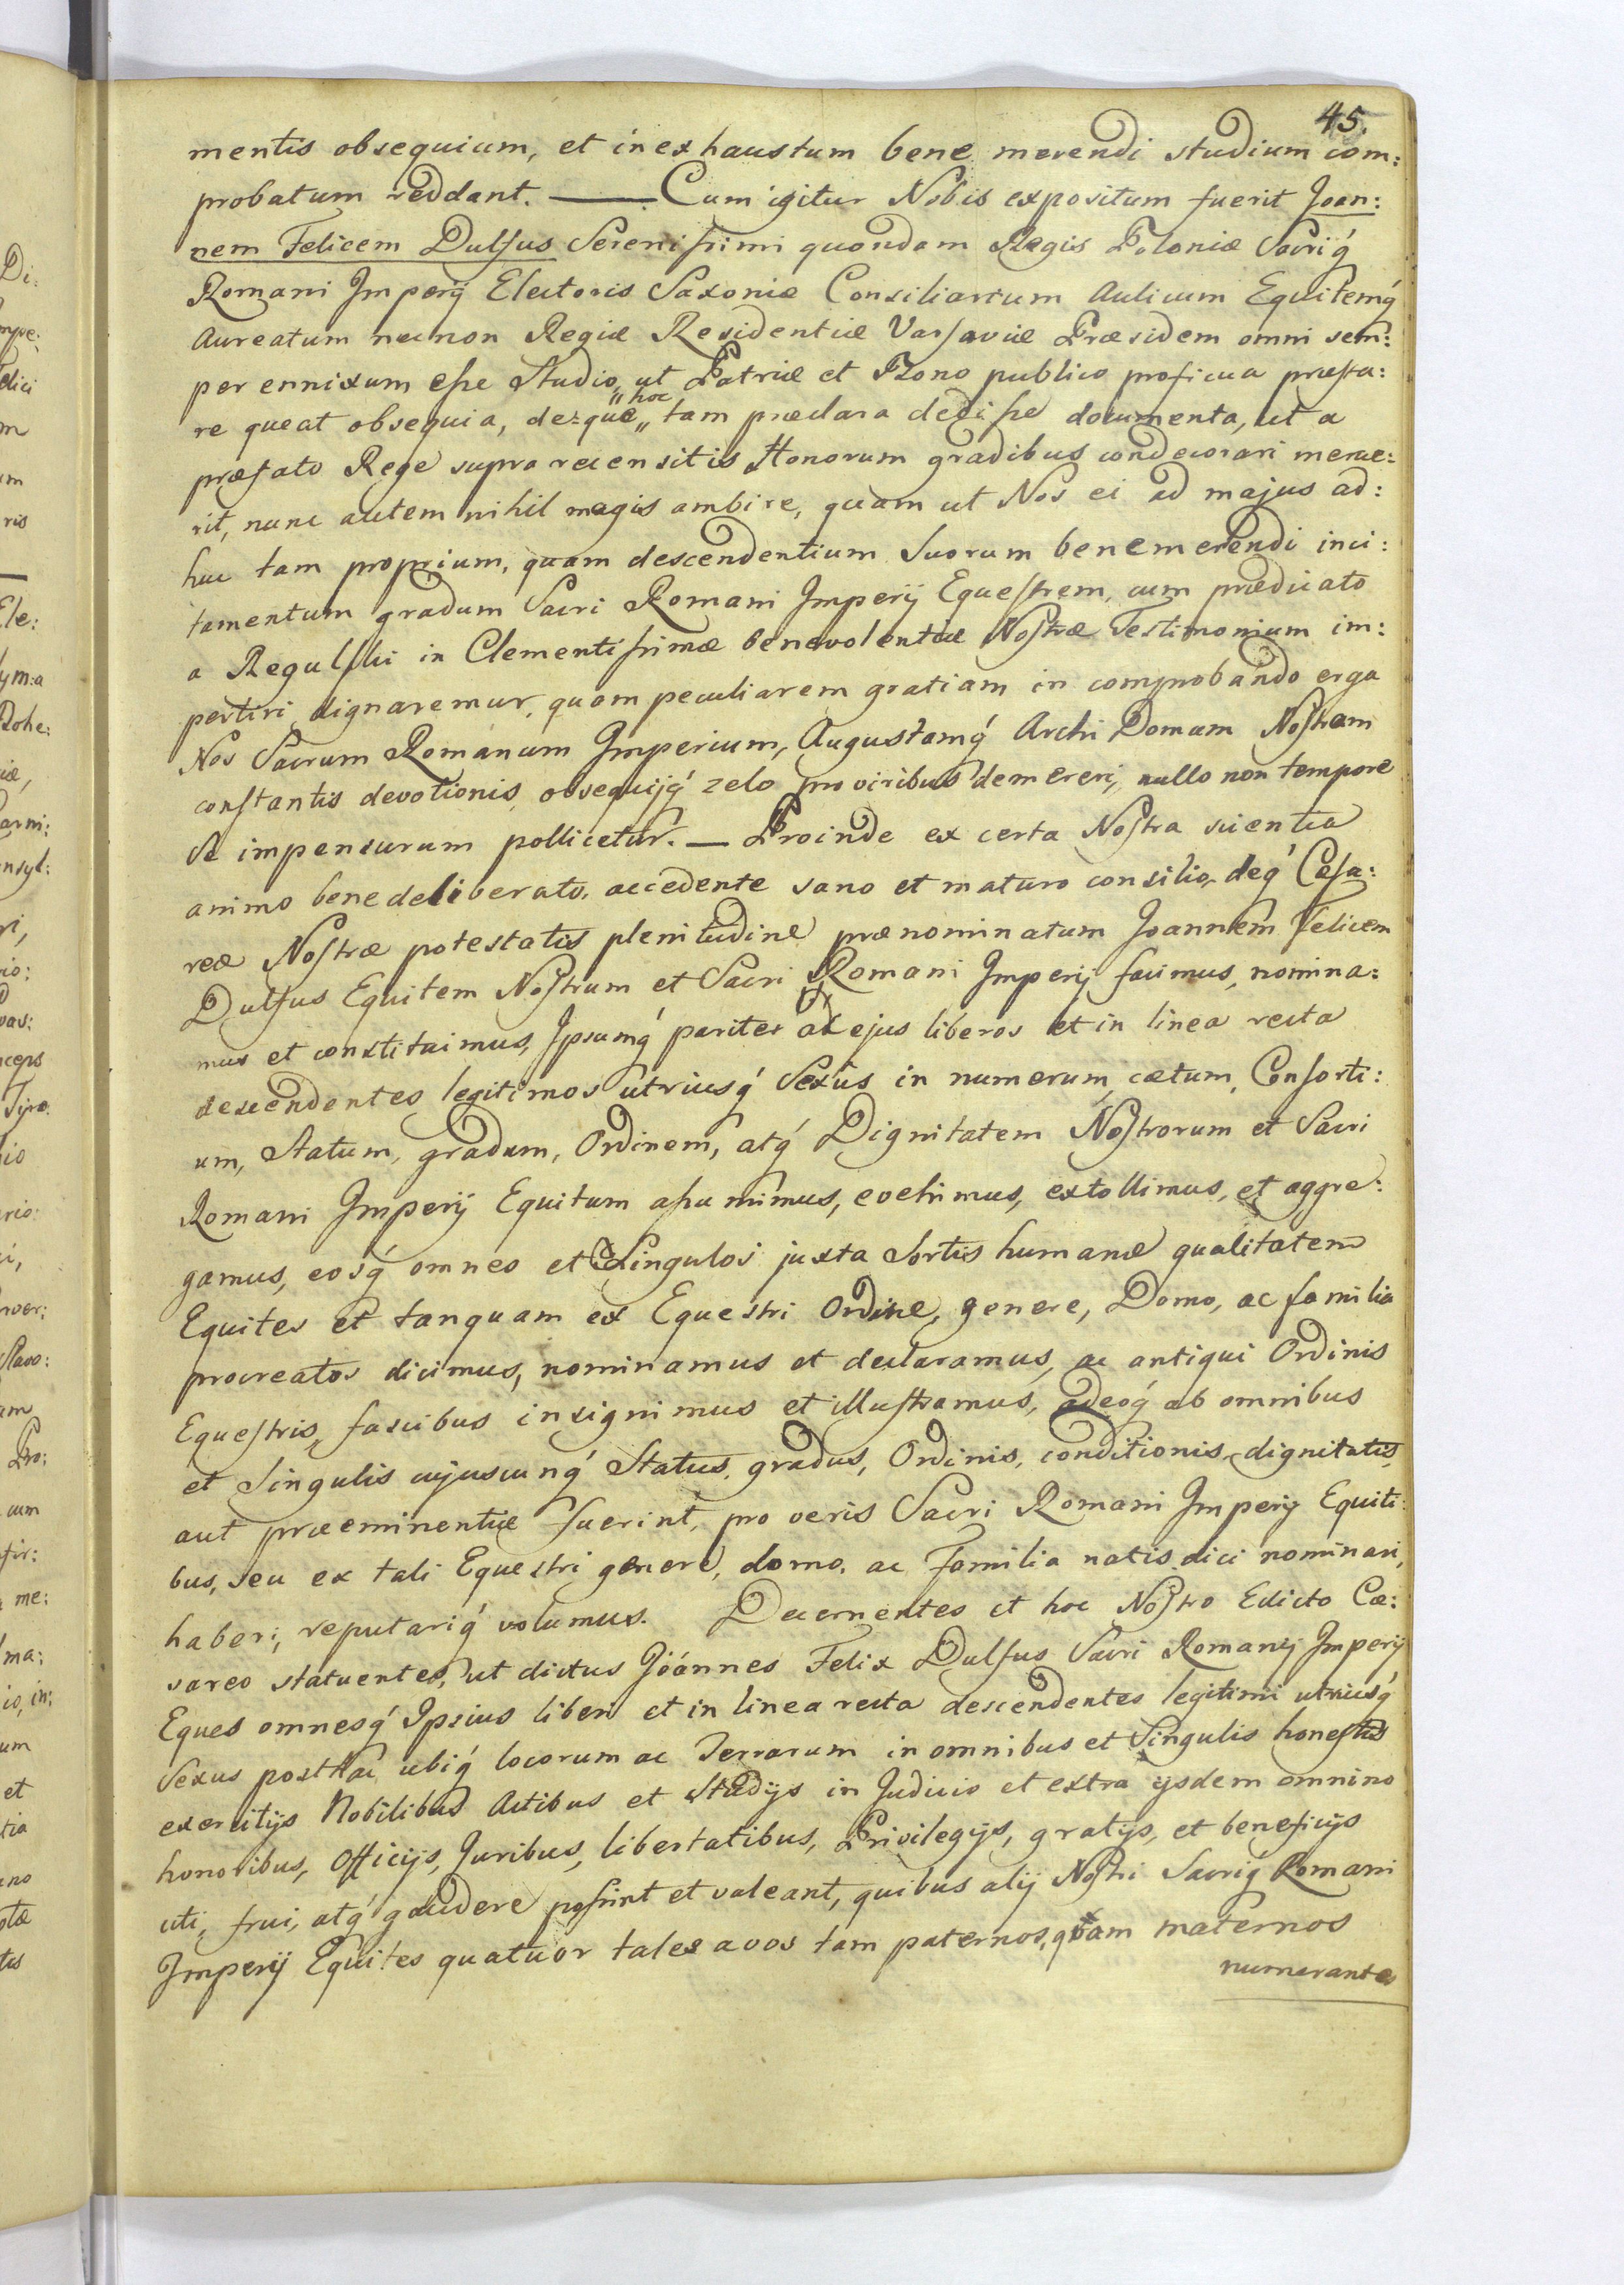 45.
mentis obsequium, et inexhaustum bene merendi studium com:
probatum reddant. —— Cum igitur Nobis expositum fuerit Joan:
nem Felicem Dulfus Serenissimi quondam Regis Poloniæ Sacriq́
Romani Imperij Electoris Saxoniæ Consiliarium Aulicum Equitemq́
Aureatum necnon Regiæ Residentiæ Varsaviæ Præsidem omni sem:
per ennixum esse Studio, ut Patriæ et Bono publico proficua præsta:
re queat obsequia, de=que „hoc„ tam præclara dedisse documenta, ut a
præfato Rege supra recensitis Honorum gradibus condecorari merue:
rit, nunc autem nihil magis ambire, quam ut Nos ei ad majus ad:
huc tam proprium, quam descendentium Suorum benemerendi inci:
tamentum gradum Sacri Romani Imperij Equestrem, cum prædicato
a Regulski in Clementissimæ benevolentiæ Nostræ Testimonium im:
pertiri dignaremur, quam peculiarem gratiam in comprobando erga
Nos Sacrum Romanum Imperium, Augustamq́ Archi Domum Nostram
constantis devotionis, obsequijq́ zelo pro viribus demereri, nullo non tempore
Se impensurum pollicetur. — Proinde ex certa Nostra scientia
animo bene deliberato, accedente sano et maturo consilio, deq́ Cæsa:
reæ Nostræ potestatis plenitudine prænominatum Joannem Felicem
Dulfus Equitem Nostrum et Sacri Romani Imperij facimus, nomina:
mus et constituimus, Ipsumq́ pariter ac ejus liberos et in linea recta
descendentes legitimos utriusq́ Sexûs in numerum, cætum, Consorti:
um, Statum, gradum, Ordinem, atq́ Dignitatem Nostrorum et Sacri
Romani Imperij Equitum assumimus, evehimus, extollimus, et aggre:
gamus, eosq́ omnes et Singulos juxta Sortis humanæ qualitatem
Equites et tanquam ex Equestri Ordine, genere, Domo, ac familia
procreatos dicimus, nominamus et declaramus, ac antiqui Ordinis
Equestris, fascibus insignimus et illustramus, adeoq́ ab omnibus
et Singulis cujuscunq́ Status, gradus, Ordinis, conditionis, dignitatis,
aut præeminentiæ fuerint, pro veris Sacri Romani Imperij Equiti:
bus, seu ex tali Equestri genere, domo, ac Familia natis dici nominari,
haberi, reputariq́ volumus. Decernentes et hoc Nostro Edicto Cæ:
sareo statuentes, ut dictus Joannes Felix Dulfus Sacri Romani Imperij
Eques omnesq́ Ipsius liberi et in linea recta descendentes legitimi utriusq́
Sexus posthac ubiq́ locorum ac Terrarum in omnibus et Singulis honestis
exercitijs Nobilibus Actibus et Studijs in Judicio et extra ijsdem omnino
honoribus, Officijs, Juribus, libertatibus, Privilegijs, gratijs, et beneficijs
uti, frui, atq́ gaudere possint et valeant, quibus alij Nostri Sacriq́ Romani
Imperij Equites quatuor tales avos tam paternos, quam maternos
numerantes